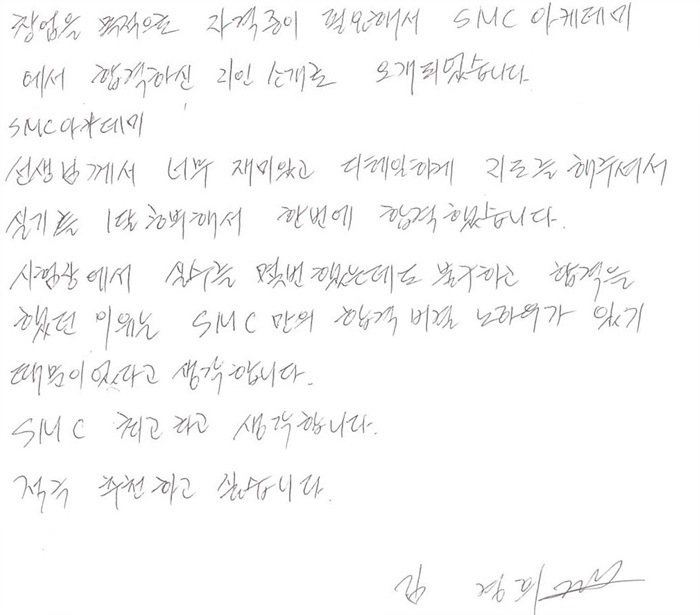 창업을 목적으로 자격증이 필요해서 SMC 아케데미
에서 합격하신 지인 소개로 오개되었습니다.
SMC아카데미
선생님께서 너무 재미있고 디테일하게 지도를 해주셔서
실기를 1달 준비해서 한번에 합격했습니다.
시험장에서 실수를 몇번 했는데도 불구하고 합격을
했던 이유는 SMC 만의 합격 비결 노하우가 있기
때문이었다고 생각합니다.
SMC 최고라고 생각합니다.
적극 추천하고 싶습니다.
김 경희